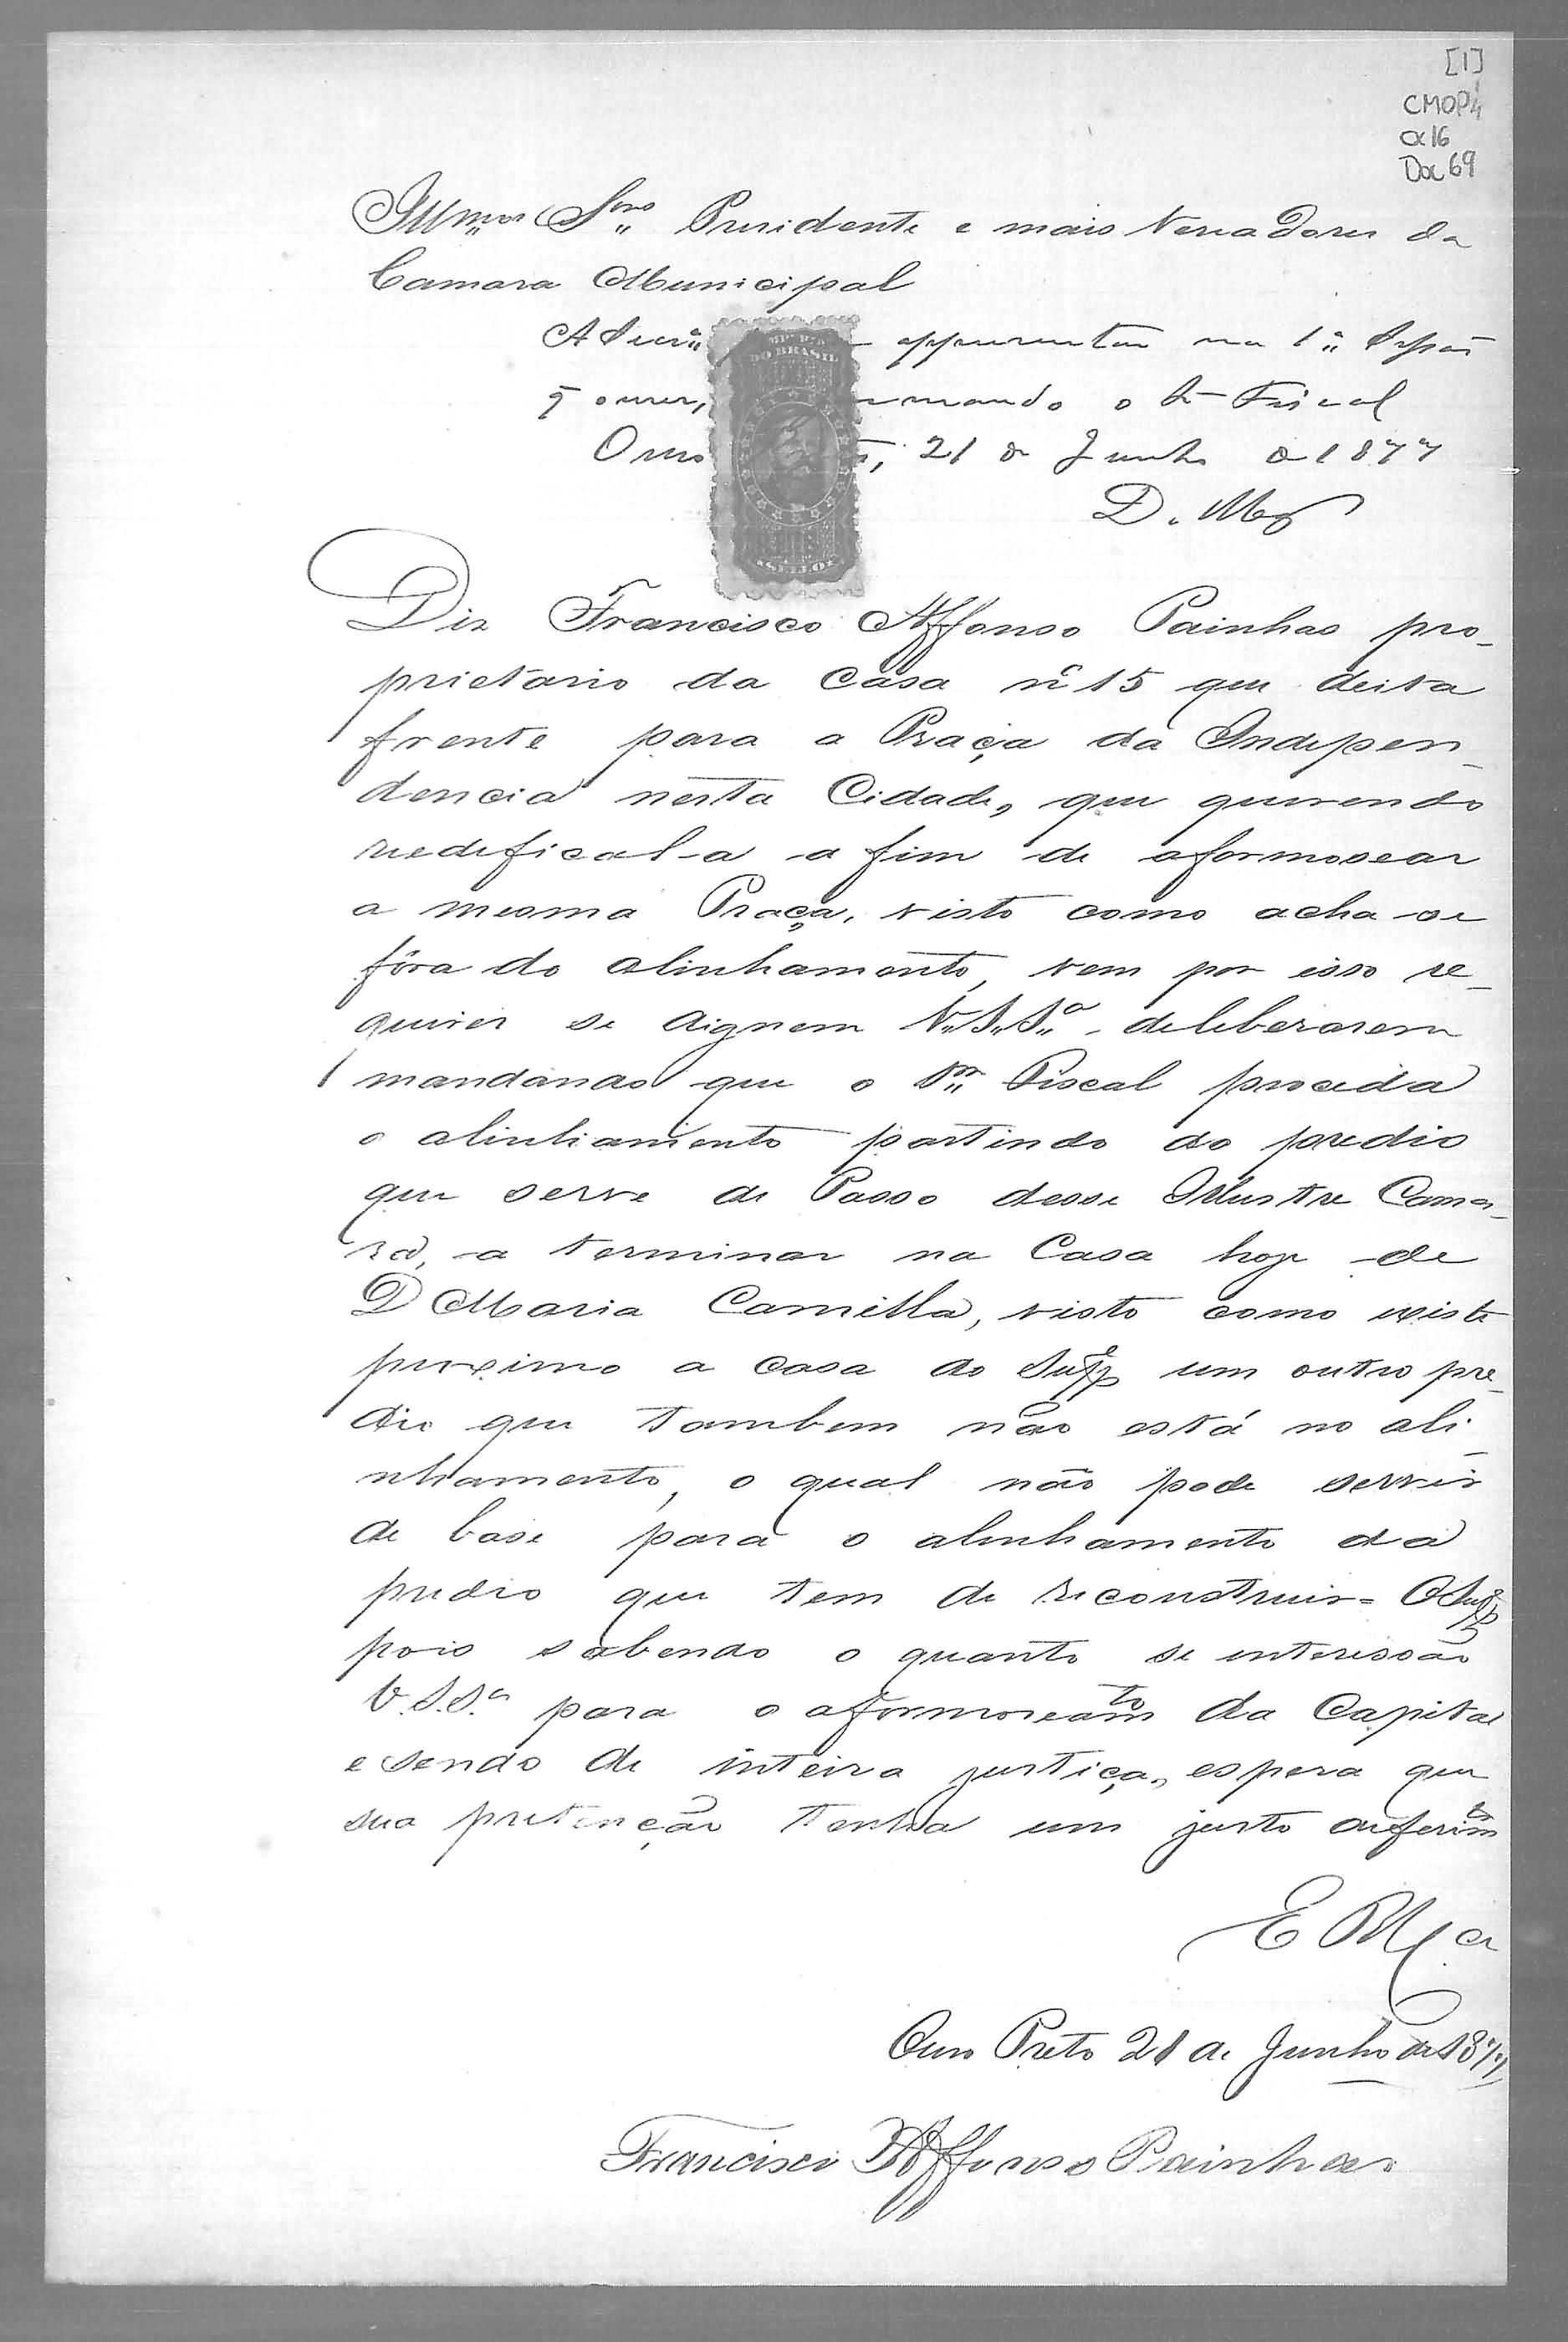 [1]
CMOP
cx 16
Doc 69
Illmos Snres Presidente e mais Vereadores da
Camara Municipal
A Secr.a apparentar na 1.a Sessão
q ouver, mando o Sr Fiscal
Ouro 21 de Junho de 1877
IMPERIO
DO BRASIL
SELLO
Diz Francisco Affonso Painhas pro-
prietario da Casa nº 15 que deita
frente para a Praça da Indepen-
dencia nesta Cidade, que querendo
reedifical-a a fim de aformosear
a mesma Praça, visto como acha-se
fóra do alinhamento, vem por isso re-
querer se dignem V.S.Sas deliberarem
mandando que o Snr Fiscal proceda
o alinhamento partindo do predio
que serve de Passo desse Illustre Cama-
ra, a terminar na Casa hoje de
D Maria Camilla, visto como existe
proximo a casa do Suppe um outro pre-
dio que tambem não está no ali-
nhamento, o qual não pode servir
de base para o alinhamento da
predio que tem de reconstruir= O Suppe
pois sabendo o quanto se interessão
V.S.Sas para o aformoseamto da Capital
e sendo de inteira justiça, espera que
sua pretenção tenha um justo deferimto
E R Mce
Ouro Preto 21 de Junho de 1877
Francisco Affonso Painhas